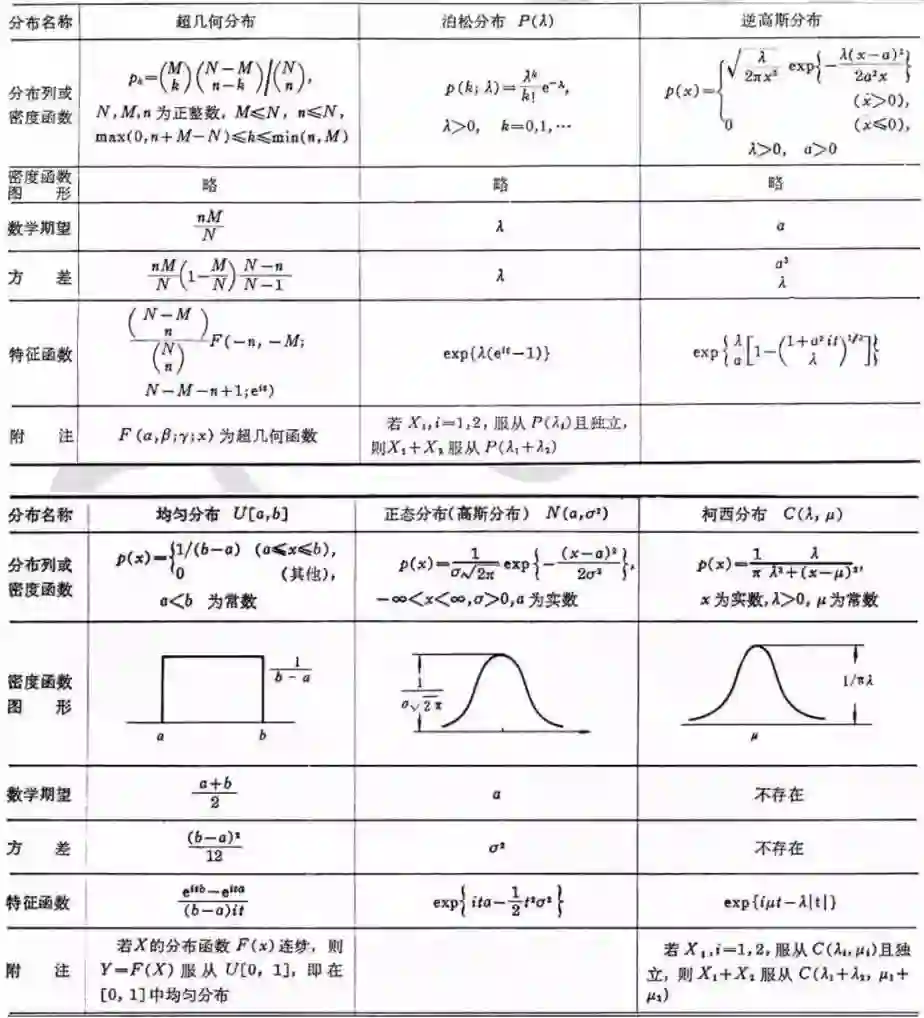 分布名称 超几何分布 泊松分布 P(λ) 逆高斯分布
分布列或密度函数 p_k=\binom{M}{k}\binom{N-M}{n-k}/\binom{N}{n}, N,M,n为正整数, M≤N, n≤N, max(0,n+M-N)≤k≤min(n,M) p(k; λ)=\frac{λ^k}{k!}e^{-λ}, λ>0, k=0,1,⋯ p(x)=\begin{cases}\sqrt{\frac{λ}{2πx^3}} exp{-\frac{λ(x-a)^2}{2a^2x}} (x>0), \\ 0 (x≤0),\end{cases} λ>0, a>0
密度函数图 形 略 略 略
数学期望 \frac{nM}{N} λ a
方 差 \frac{nM}{N}(1-\frac{M}{N})\frac{N-n}{N-1} λ \frac{a^3}{λ}
特征函数 \frac{\binom{N-M}{n}}{\binom{N}{n}}F(-n, -M; N-M-n+1;e^{it}) exp{λ(e^{it}-1)} exp{\frac{λ}{a}[1-(\frac{1+a^2 it}{λ})^{1/2}]}
附 注 F(α,β;γ;x)为超几何函数 若X_i,i=1,2,服从P(λ_i)且独立,则X_1+X_2服从P(λ_1+λ_2)
分布名称 均匀分布 U[a,b] 正态分布(高斯分布) N(a,σ²) 柯西分布 C(λ, μ)
分布列或密度函数 p(x)=\begin{cases}1/(b-a) (a≤x≤b), \\ 0 (其他),\end{cases} a<b 为常数 p(x)=\frac{1}{σ\sqrt{2π}}exp{-\frac{(x-a)^2}{2σ^2}}, -∞<x<∞,σ>0,a为实数 p(x)=\frac{1}{π}\frac{λ}{λ^2+(x-μ)^2}, x为实数,λ>0, μ为常数
密度函数图 形 \frac{1}{b-a} a b \frac{1}{σ\sqrt{2π}} 1/πλ μ
数学期望 \frac{a+b}{2} a 不存在
方 差 \frac{(b-a)^2}{12} σ² 不存在
特征函数 \frac{e^{itb}-e^{ita}}{(b-a)it} exp{ita-\frac{1}{2}t²σ²} exp{iμt-λ|t|}
附 注 若X的分布函数F(x)连续, 则Y=F(X)服从U[0, 1], 即在[0, 1]中均匀分布 若X_i,i=1,2,服从C(λ_i,μ_i)且独立, 则X_1+X_2服从C(λ_1+λ_2, μ_1+μ_2)